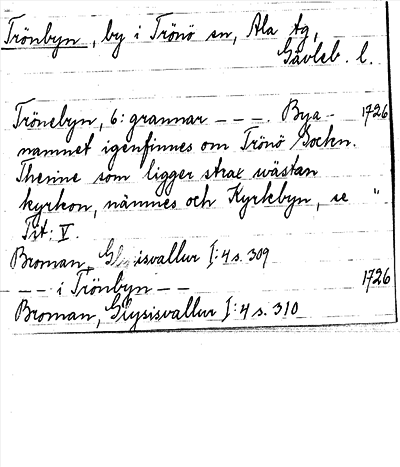 Trönbyn, by i Trönö sn, Ala tg,
Gävleb. l.
Trönebyn, 6: grannar - - -. Bya- 1726
namnet igenfinnes om Trönö Sockn.
Thenne som ligger strax wästan
kyrkon, nämnes och Kyrkbyn, se "
Tit: V.
Broman, Glysisvallur I:4 s. 309
- - - i Trönbyn - - 1726
Broman, Glysisvallur I:4 s. 310